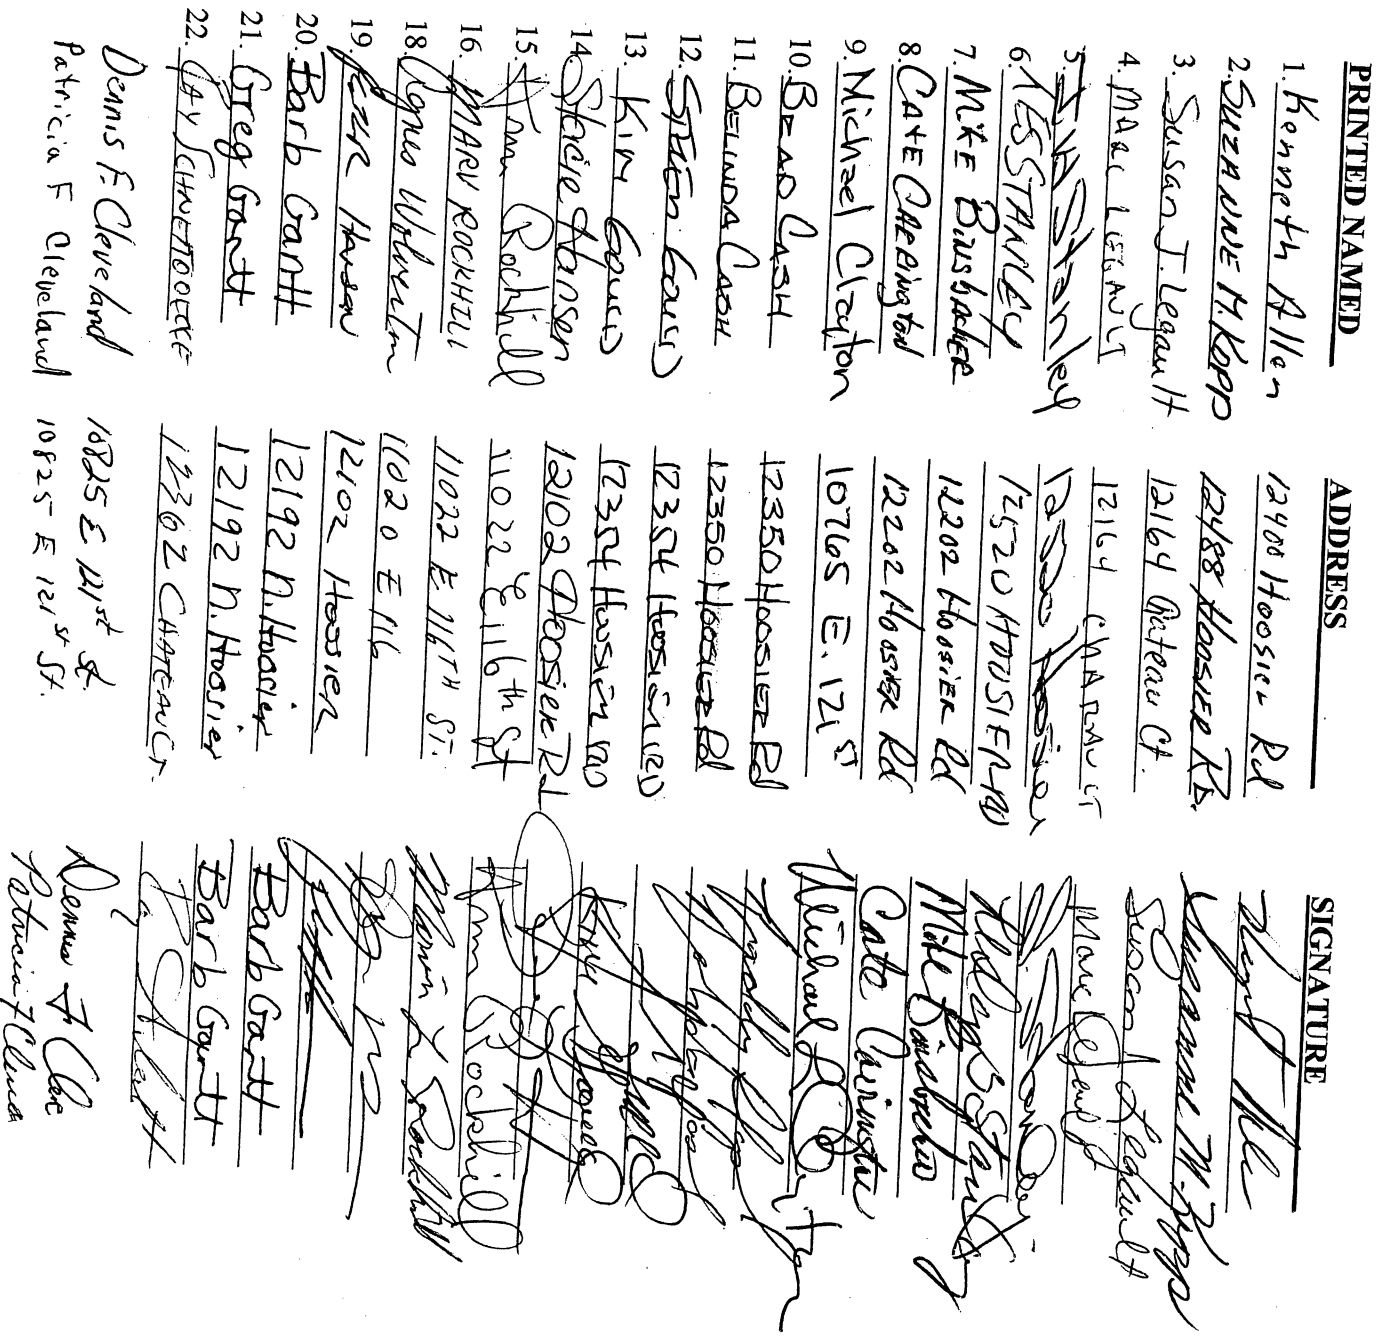 PRINTED NAMED ADDRESS SIGNATURE
1. Kenneth Allen 12400 Hoosier Rd
2. SUZANNE M. KOPP 12488 HOOSIER RD. Suzanne M. Kopp
3. Susan J. Legault 12164 Chateau Ct. Susan J Legault
4. MARC LEGAULT 12164 Marc Legault
5. Stanley Hoosier
6. TES STANLEY 12520 HOOSIER RD
7. MIKE BINSBACHER 12202 HOOSIER Rd Mike Binsbacher
8. CATE CARRINGTON 12202 HOOSIER Rd Cate Carrington
9. Michael Clayton 10765 E. 121st Michael Clayton
10. BRAD CASH 12350 HOOSIER Rd
11. BELINDA CASH 12350 HOOSIER Rd
12. GOULD 12354 HOOSIER RD
13. KIM GOULD 12354 HOOSIER RD
14. Stacie Hansen 12102 Hoosier Rd
15. Ann Rockhill 11022 E 116th St Ann Rockhill
16. MARV ROCKHILL 11022 E 116TH ST. Marvin L Rockhill
18. Agnus Wolverton 11020 E 116
19. Hansen 12102 Hoosier
20. Barb Gantt 12192 N. Hoosier Barb Gantt
21. Greg Gantt 12192 N. Hoosier Barb Gantt
22. JAY 12362 CHATEAU CT.
Dennis F. Cleveland 10825 E 121st St. Dennis F
Patricia F Cleveland 10825 E 121st St. Patricia F